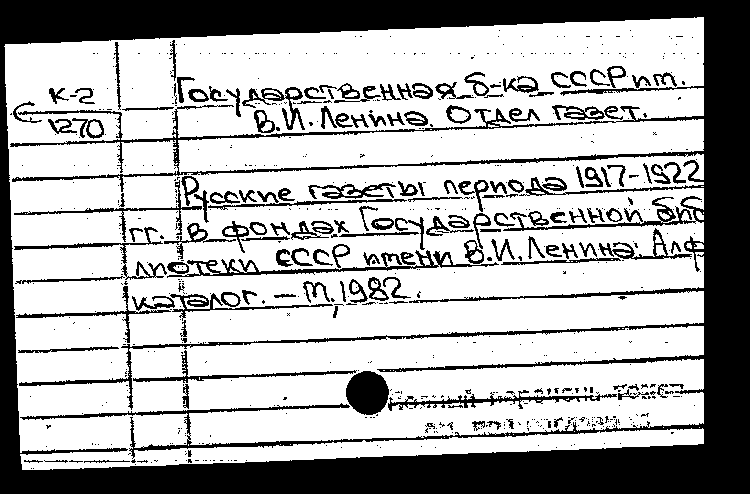 К-2
С 1270
Государственная б-ка СССР им.
В.И.Ленина. Отдел газет.
Русские газеты периода 1917-1922
гг. в фондах Государственной биб
лиотеки СССР имени В.И.Ленина: Алф
каталог. — М., 1982.
Полный перечень томов
см. под